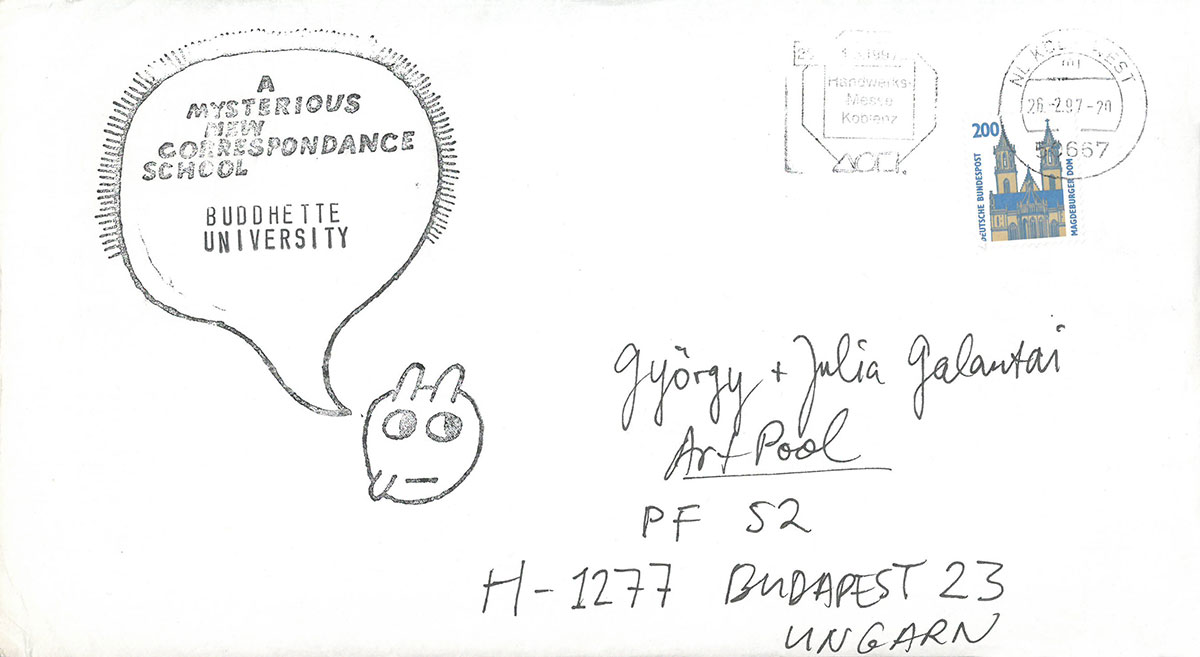 A
MYSTERIOUS
NEW
CORRESPONDANCE
SCHOOL
BUDDHETTE
UNIVERSITY
Handwerks-
Messe
Koblenz
NL KO
EST
26.-2.97-20
667
200
DEUTSCHE BUNDESPOST
MAGDEBURGER DOM
György + Julia Galantai
Art Pool
PF 52
H-1277 BUDAPEST 23
UNGARN